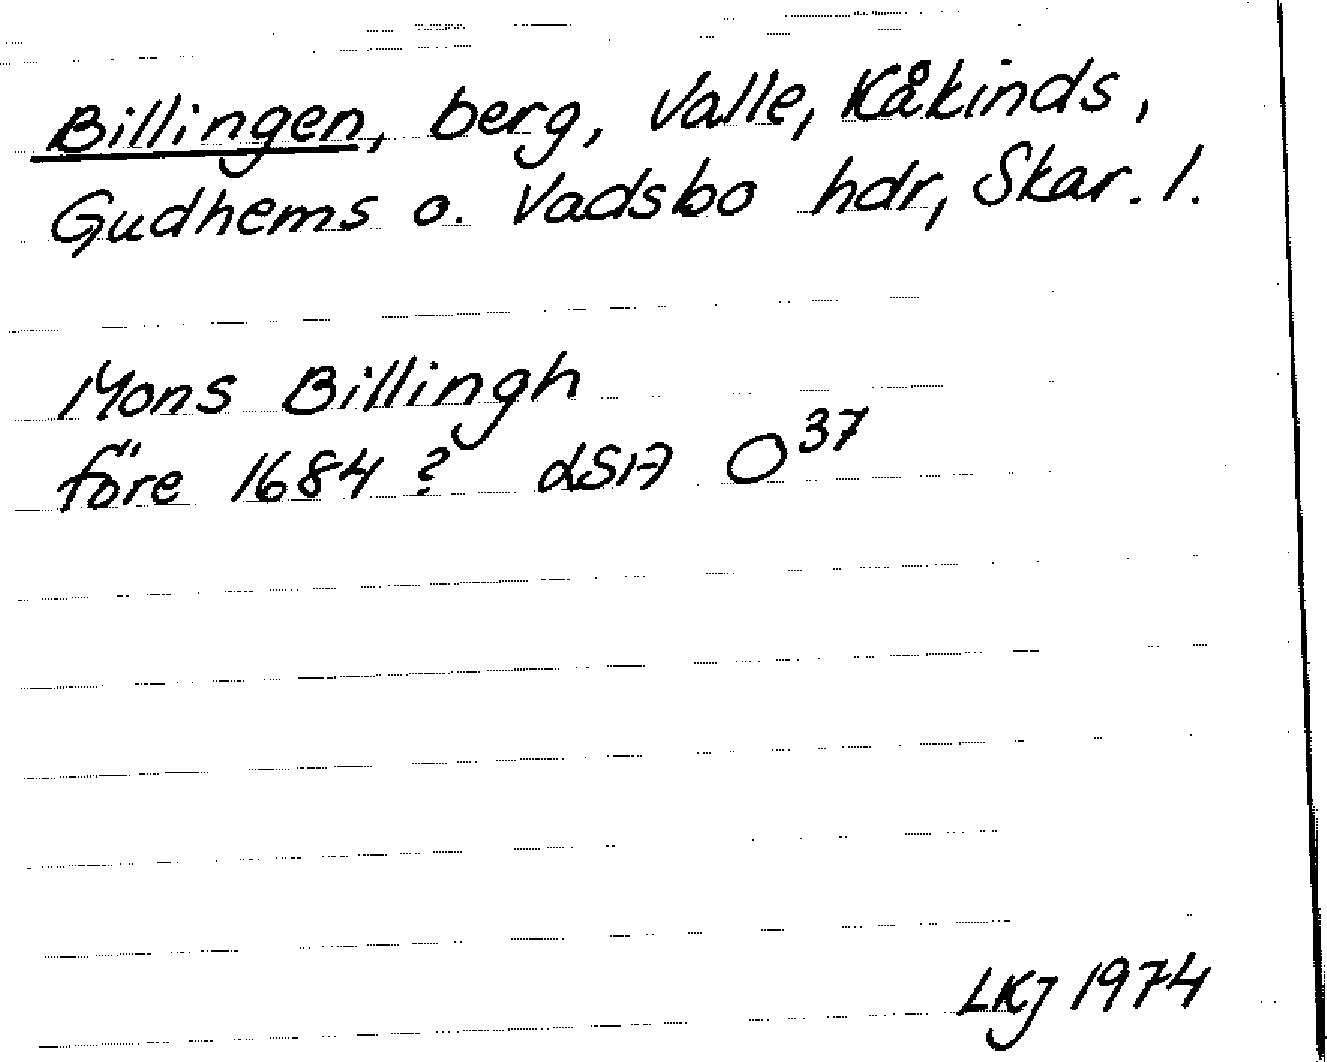 Billingen, berg, Valle, Kåkinds,
Gudhems o. Vadsbo hdr, Skar. l.
Mons Billingh
före 1684 ? LSA O³⁷
LKJ 1974